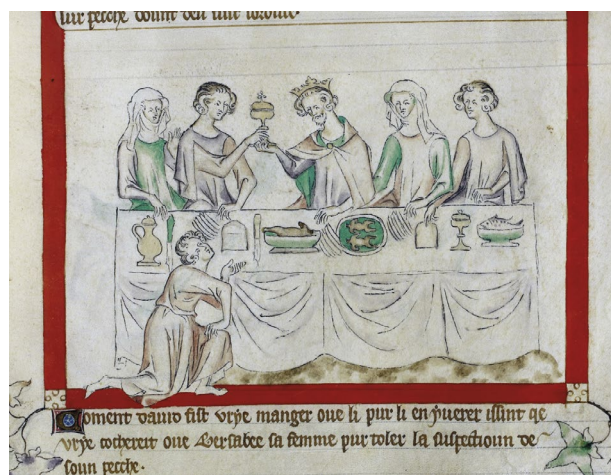 sur pecche dount deu
Coment dauid fist vrye manger oue li pur li enyuerer issint qe
vrye cochereit oue Bersabee sa femme pur toler la suspectioun de
soun pecche.